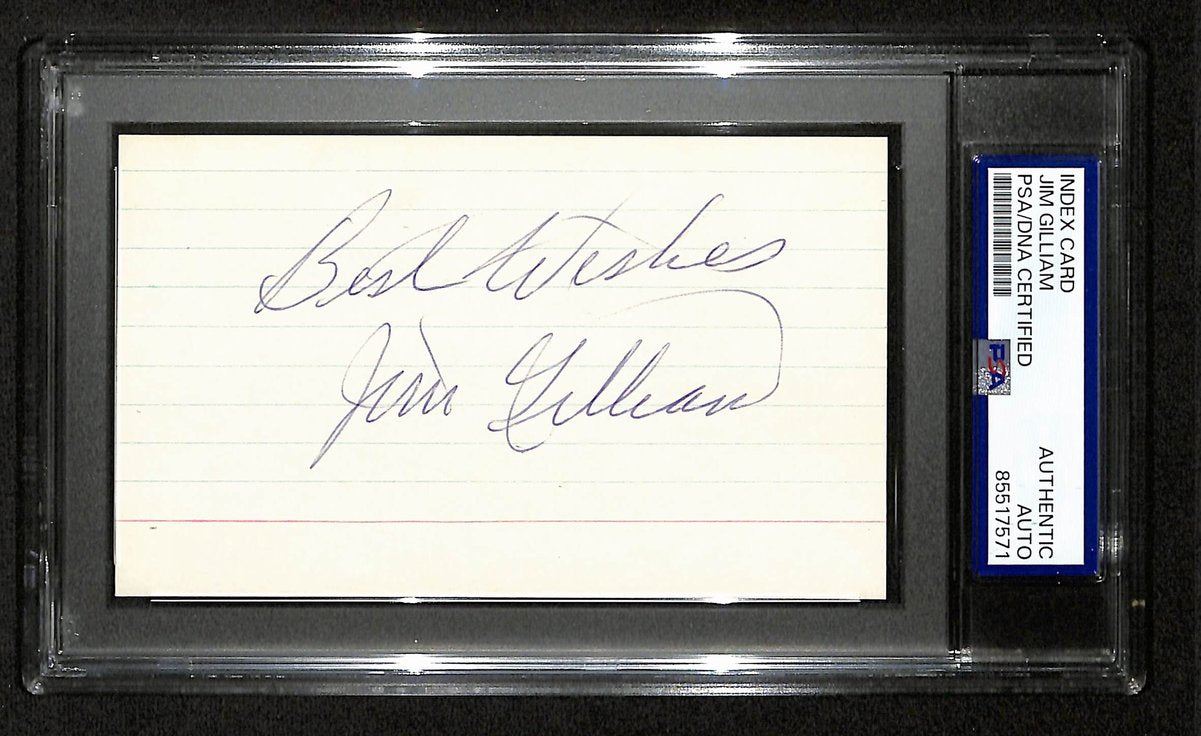 Best Wishes
Jim Gilliam
INDEX CARD
JIM GILLIAM
PSA/DNA CERTIFIED
PSA
AUTHENTIC
AUTO
85517571